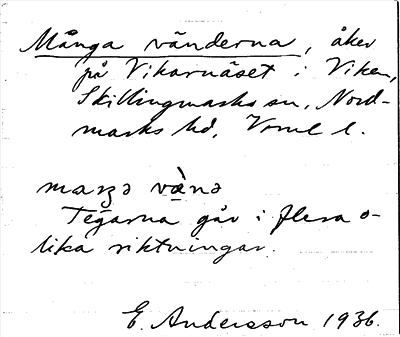 Många vänderna, åker
på Vikarnäset i Viken,
Skillingmarks sn, Nord-
marks hd, Vrml l.
Tegarna går i flera o-
lika riktningar.
E. Andersson 1936.